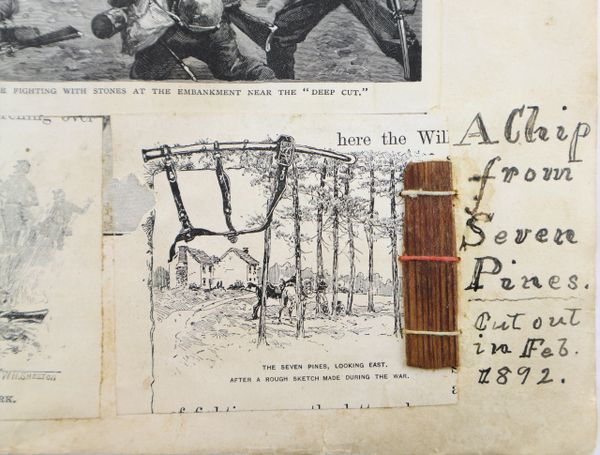 FIGHTING WITH STONES AT THE EMBANKMENT NEAR THE "DEEP CUT."
over
here the Wil
A Chip
from
Seven
Pines.
Cut out
in Feb.
1892.
THE SEVEN PINES, LOOKING EAST.
AFTER A ROUGH SKETCH MADE DURING THE WAR.
W.H. SHELTON
RK.